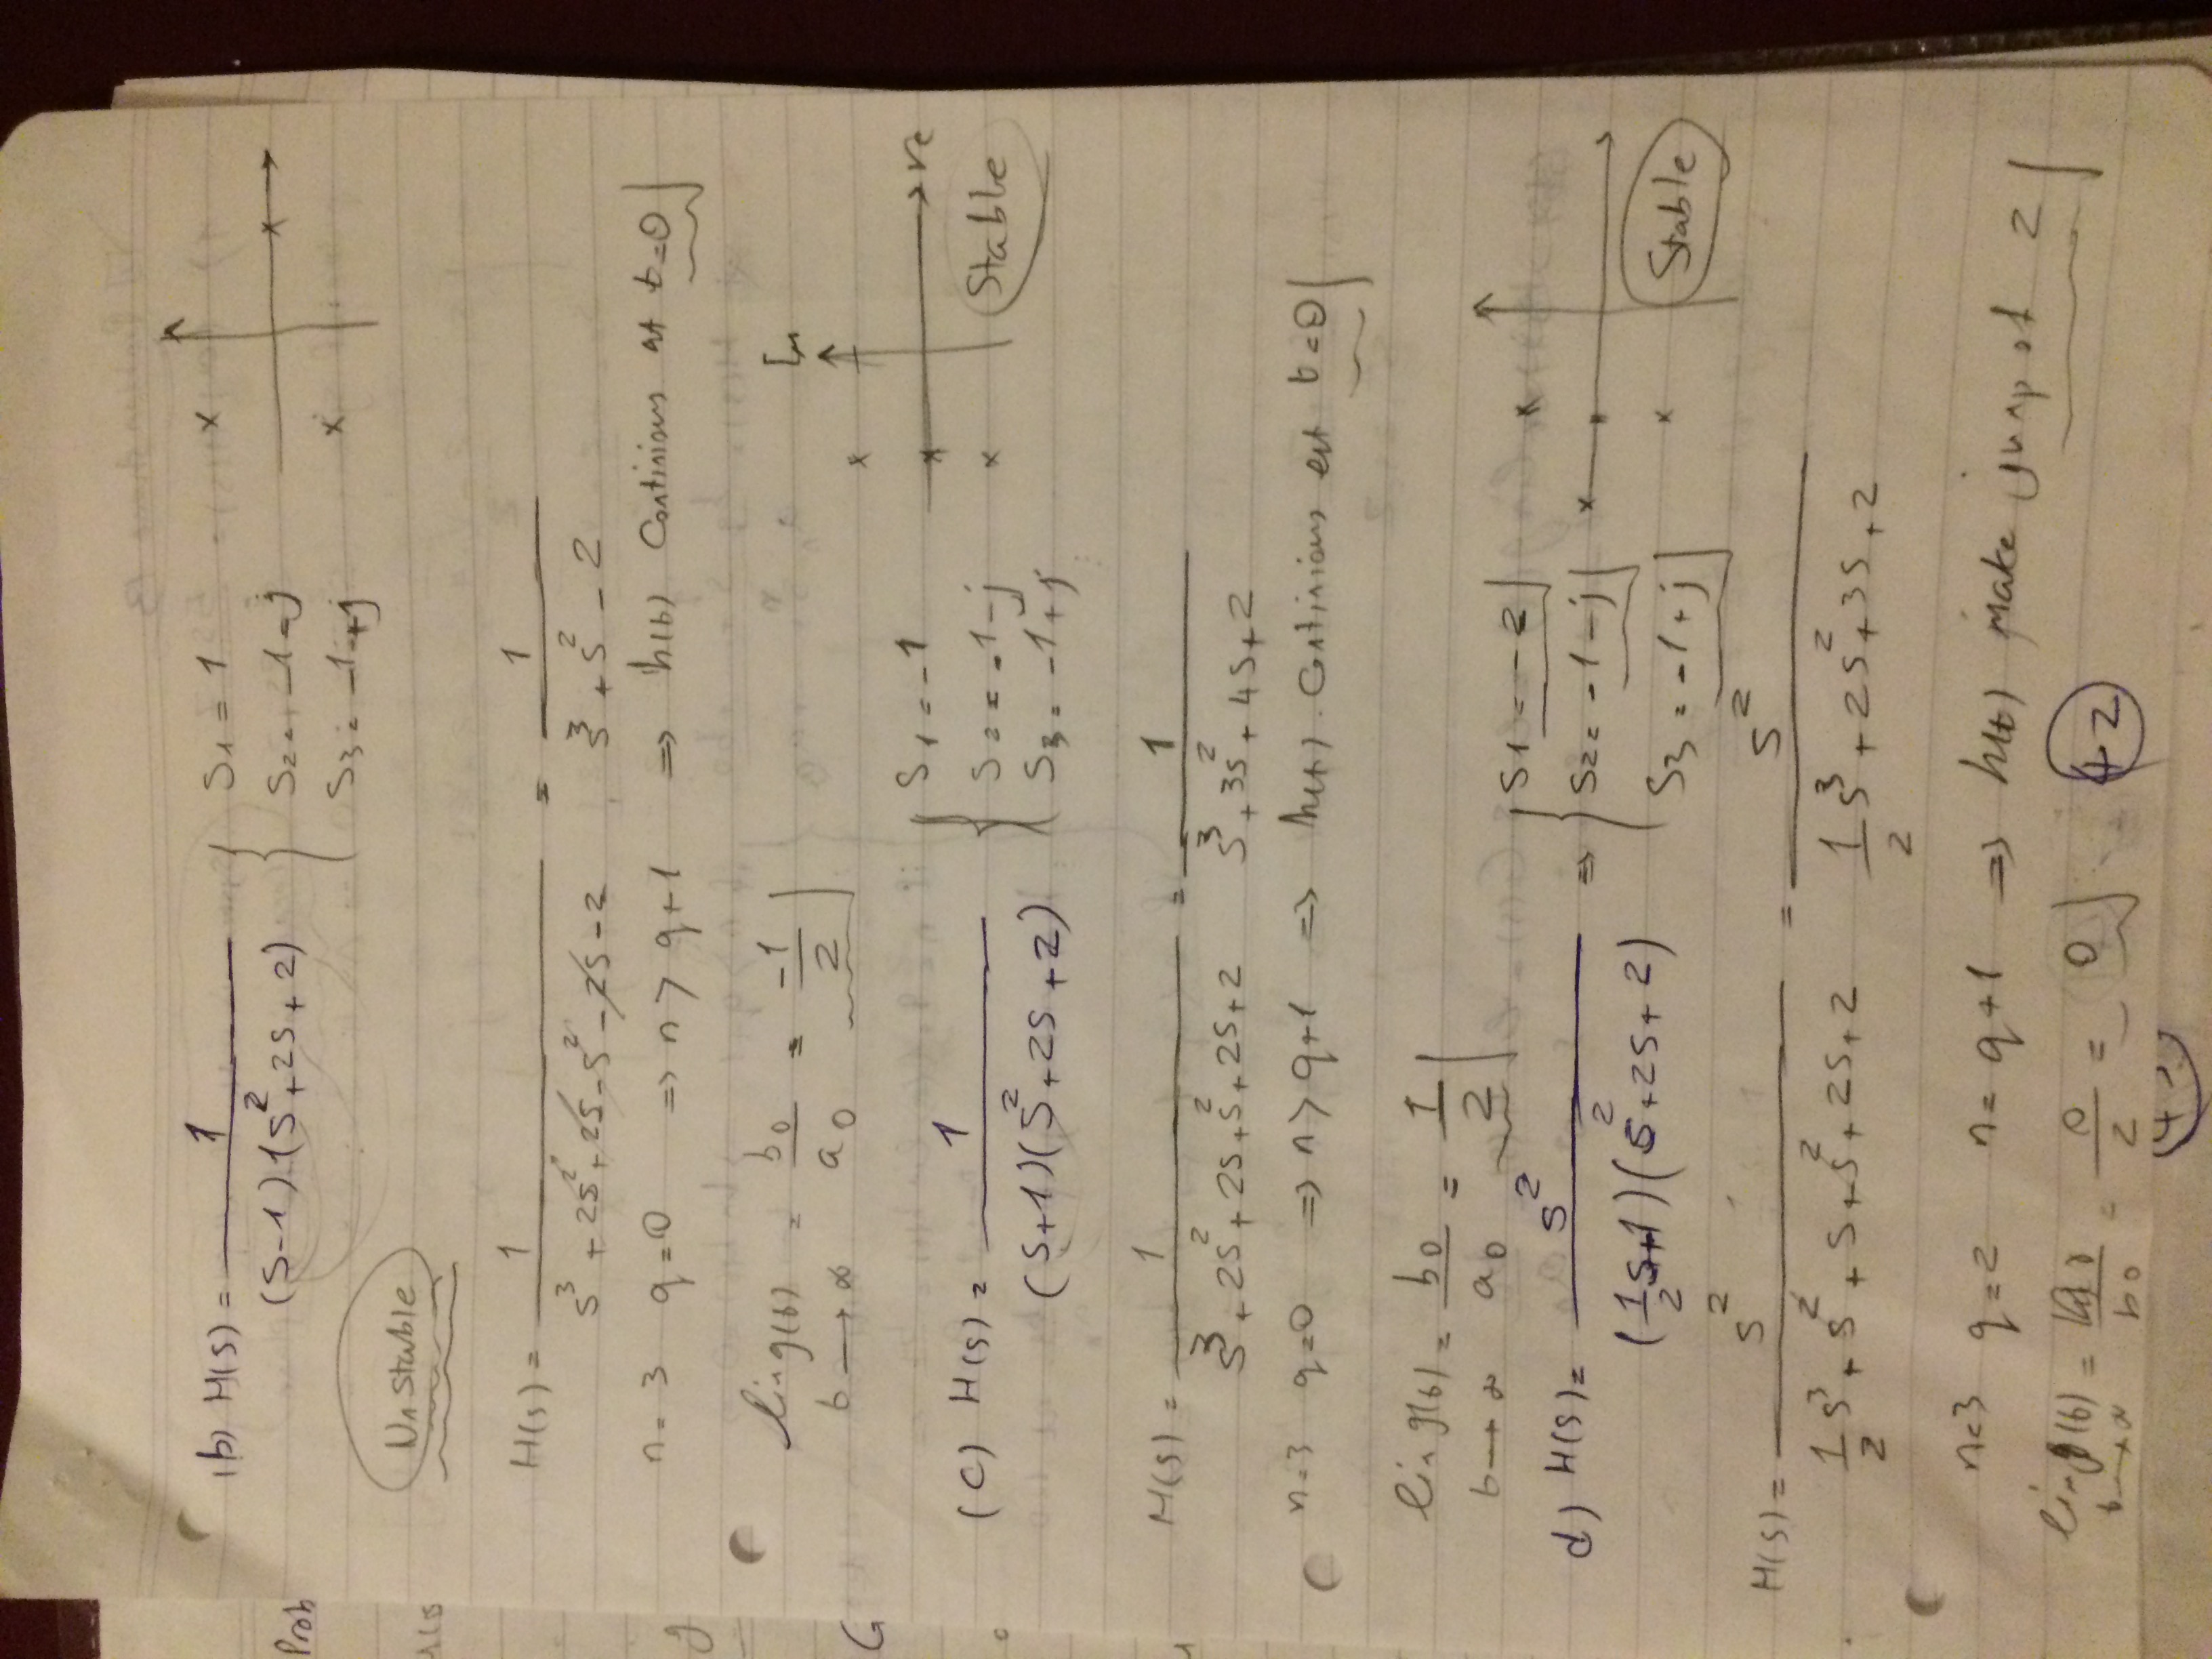 (b) H(s) = 1 / (s-1)(s²+2s+2) { s₁ = 1
s₂ = -1-j
s₃ = -1+j
Unstable
H(s) = 1 / s³+2s²+2s-s²-2s-2 = 1 / s³+s²-2
n=3 q=0 ⇒ n > q+1 ⇒ h(t) Continious at t=0
lim g(t) = b₀/a₀ = -1/2
t→∞
Im
re
(c) H(s) = 1 / (s+1)(s²+2s+2) { s₁ = -1
s₂ = -1-j
s₃ = -1+j
Stable
H(s) = 1 / s³+2s²+2s+s²+2s+2 = 1 / s³+3s²+4s+2
n=3 q=0 ⇒ n > q+1 ⇒ h(t) Continious at t=0
lim g(t) = b₀/a₀ = 1/2
t→∞
d) H(s) = s² / (1/2 s+1)(s²+2s+2) ⇒ { s₁ = -2
s₂ = -1-j
s₃ = -1+j
Stable
H(s) = s² / 1/2 s³+s²+s+s²+2s+2 = s² / 1/2 s³+2s²+3s+2
n=3 q=2 n=q+1 ⇒ h(t) make jump of 2
lim g(t) = 0/2 = 0
t→∞ b₀
42
Prob